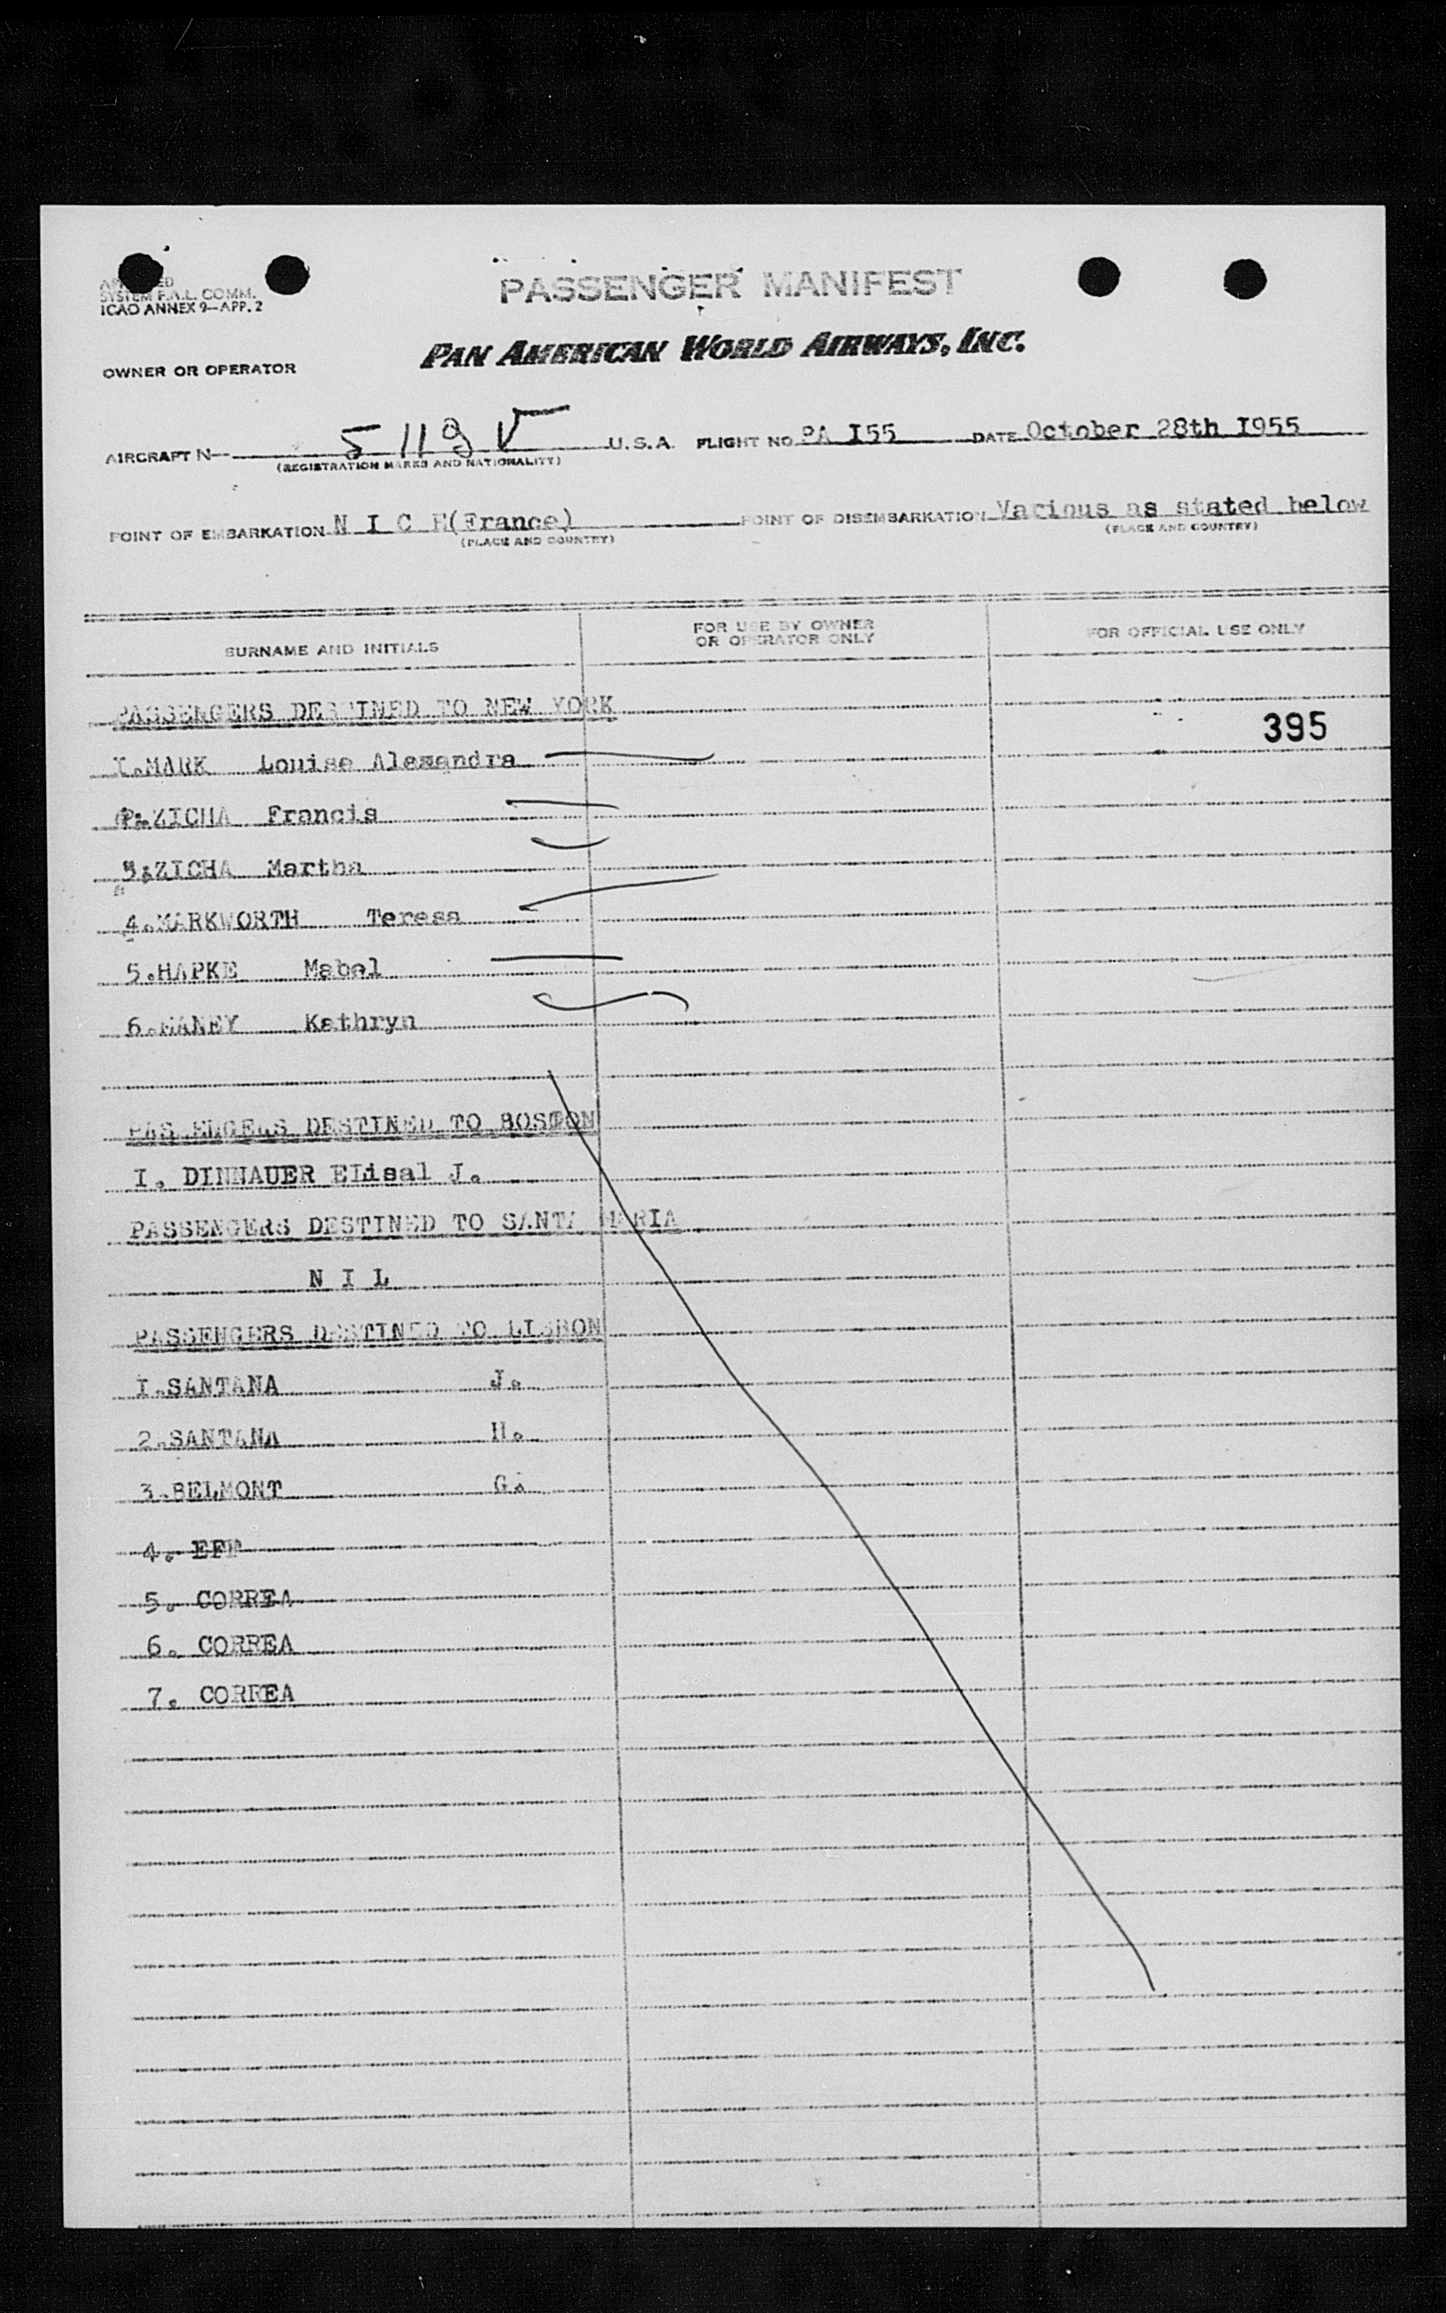 SYSTEM F.A.L. COMM.
ICAO ANNEX 9—APP. 2
PASSENGER MANIFEST
PAN AMERICAN WORLD AIRWAYS, INC.
OWNER OR OPERATOR
AIRCRAFT N— 5119V U.S.A. FLIGHT NO. PA I55 DATE October 28th I955
(REGISTRATION MARKS AND NATIONALITY)
POINT OF EMBARKATION N I C E(France) POINT OF DISEMBARKATION Various as stated below
(PLACE AND COUNTRY) (PLACE AND COUNTRY)
SURNAME AND INITIALS FOR USE BY OWNER OR OPERATOR ONLY FOR OFFICIAL USE ONLY
PASSENGERS DESTINED TO NEW YORK
395
I.MARK Louise Alexandra
2.ZICHA Francis
3.ZICHA Martha
4.MARKWORTH Teresa
5.HAPKE Mabel
6.HANEY Kathryn
PASSENGERS DESTINED TO BOSTON
I. DINNAUER ELisal J.
PASSENGERS DESTINED TO SANTA MARIA
N I L
PASSENGERS DESTINED TO LISBON
I.SANTANA J.
2.SANTANA H.
3.BELMONT G.
4. EFF
5. CORREA
6. CORREA
7. CORREA